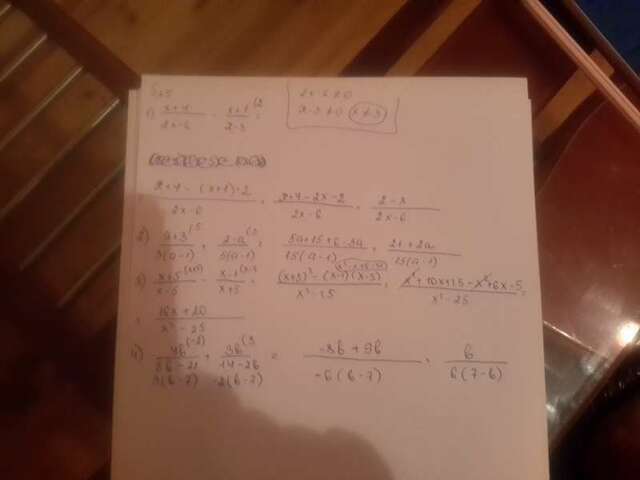 1) (x+4)/(2x-6) - (x+1)/(x-3) (2 =
x-3≠0 x≠3
(x+4-(x+1)·2)/(2x-6) = (x+4-2x-2)/(2x-6) = (2-x)/(2x-6)
2) (a+3)/(3(a-1)) (5 + (2-a)/(5(a-1)) (3 = (5a+15+6-3a)/(15(a-1)) = (21+2a)/(15(a-1))
3) (x+5)/(x-5) (x+5) - (x-1)/(x+5) (x-5) = ((x+5)² - (x-1)(x-5))/(x²-25) = (x²+10x+25-x²+6x-5)/(x²-25) =
= (16x+20)/(x²-25)
4) 4b/(3b-21) (-2) + 3b/(14-2b) (3 = (-8b+9b)/(-6(b-7)) = b/(6(7-b))
3(b-7) -2(b-7)